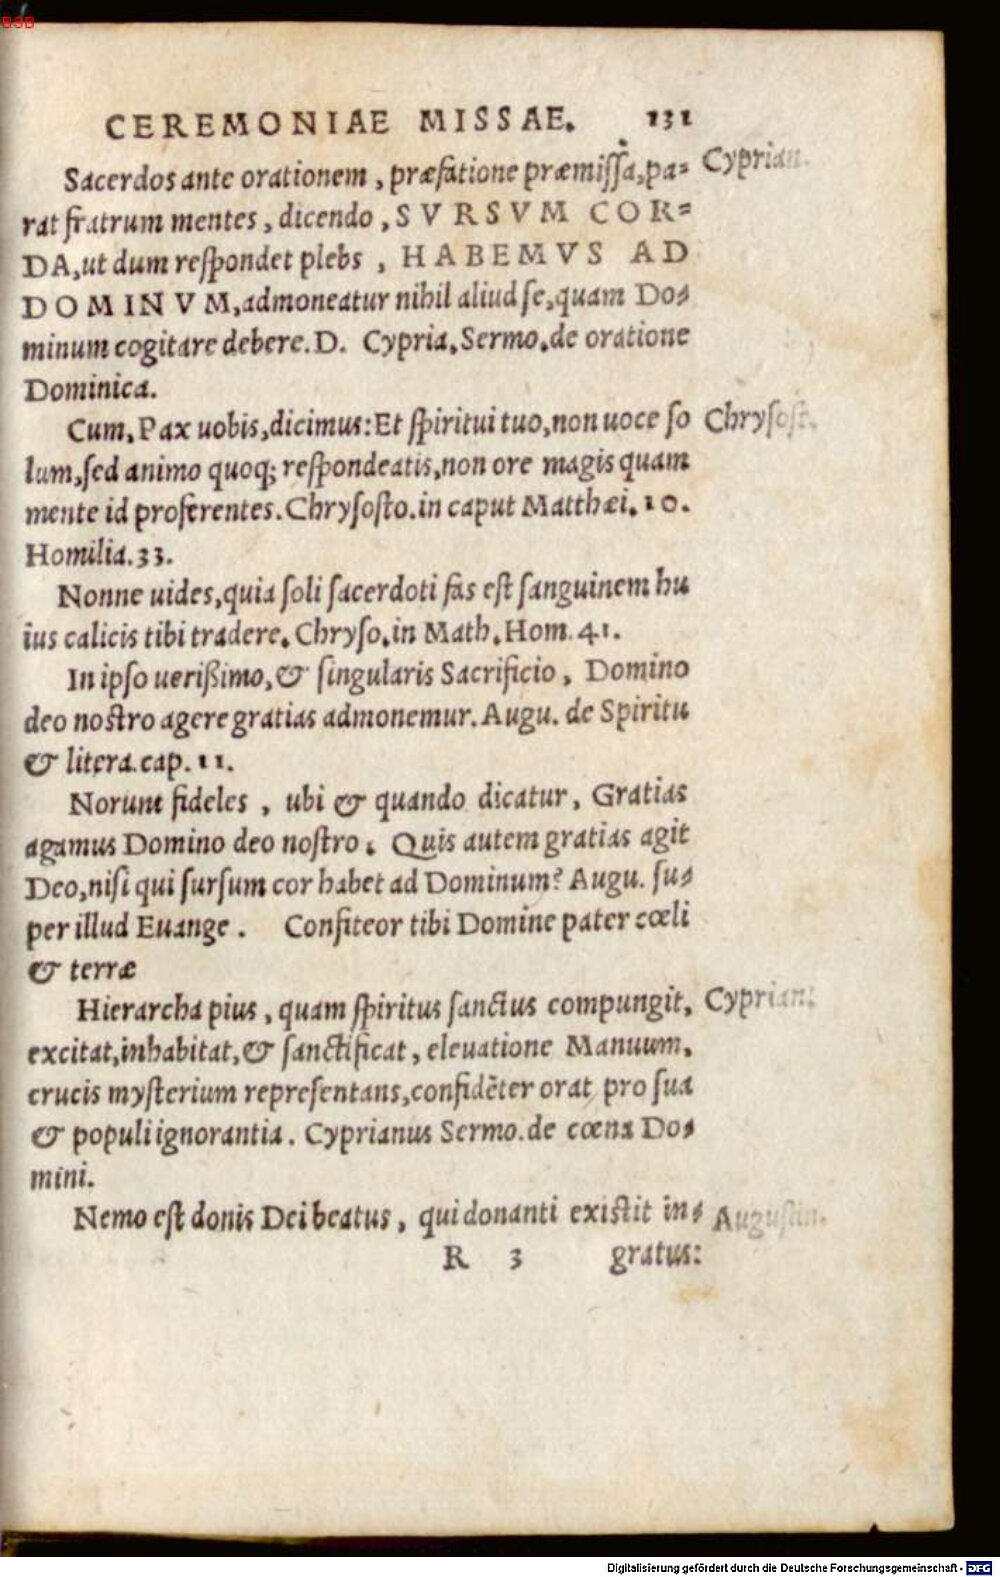 BSB
CEREMONIAE MISSAE. 131
Sacerdos ante orationem, præfatione præmissa, pa= Cyprian.
rat fratrum mentes, dicendo, SVRSVM COR=
DA, ut dum respondet plebs, HABEMVS AD
DOMINVM, admoneatur nihil aliud se, quam Do=
minum cogitare debere. D. Cypria. Sermo. de oratione
Dominica.
Cum, Pax uobis, dicimus: Et spiritui tuo, non uoce so Chrysost.
lum, sed animo quoq; respondeatis, non ore magis quam
mente id proferentes. Chrysosto. in caput Matthæi. 10.
Homilia. 33.
Nonne uides, quia soli sacerdoti fas est sanguinem hu
ius calicis tibi tradere. Chryso. in Math. Hom. 41.
In ipso uerißimo, & singularis Sacrificio, Domino
deo nostro agere gratias admonemur. Augu. de Spiritu
& litera. cap. 11.
Norunt fideles, ubi & quando dicatur, Gratias
agamus Domino deo nostro. Quis autem gratias agit
Deo, nisi qui sursum cor habet ad Dominum? Augu. su=
per illud Euange. Confiteor tibi Domine pater cœli
& terræ
Hierarcha pius, quam spiritus sanctus compungit, Cyprian.
excitat, inhabitat, & sanctificat, eleuatione Manuum,
crucis mysterium representans, confidēter orat pro sua
& populi ignorantia. Cyprianus Sermo. de cœna Do=
mini.
Nemo est donis Dei beatus, qui donanti existit in= Augustin.
R 3 gratus:
Digitalisierung gefördert durch die Deutsche Forschungsgemeinschaft - DFG